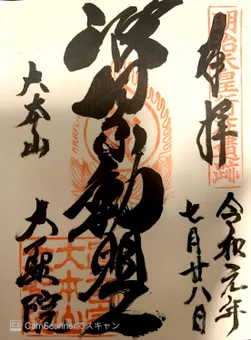 明治天皇行在所遺跡
奉拝
令和元年
七月廿八日
波切不動明王
大本山
大聖院
CS CamScannerでスキャン